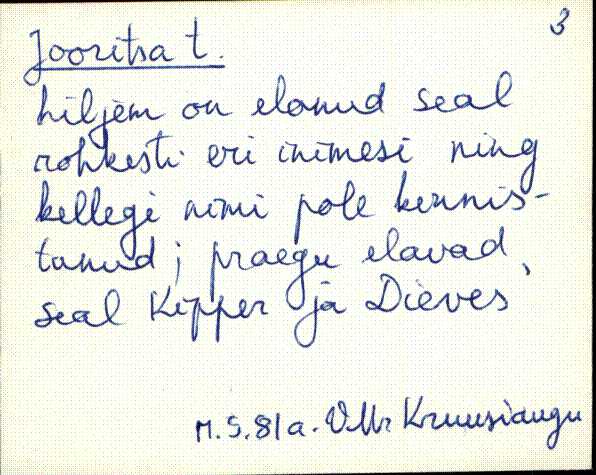 3
Jooritsa t.
hiljem on elanud seal
rohkesti eri inimesi ning
kellegi nimi pole kinnis-
tanud; praegu elavad
seal Kipper ja Dieves
M. S. 81 a. Kruusiaugu